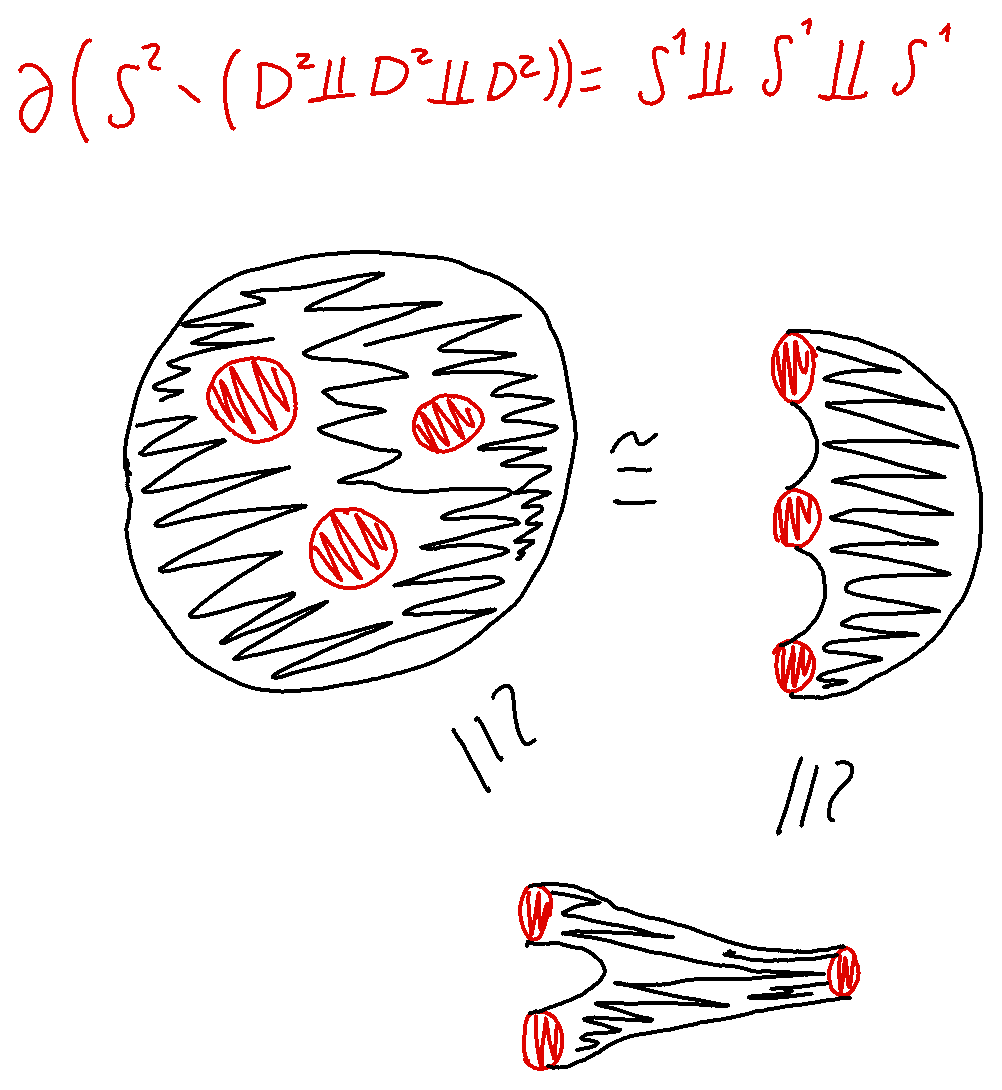 ∂(S²∖(D²⨿D²⨿D²))=S¹⨿S¹⨿S¹
≅
≅
≅